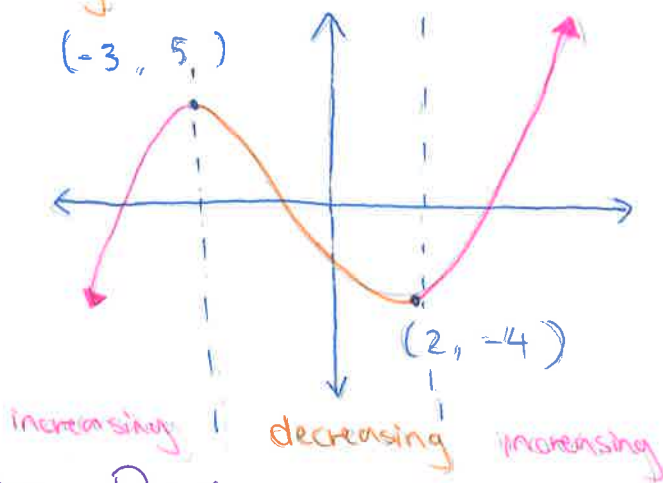 (-3, 5)
(2, -4)
increasing decreasing increasing